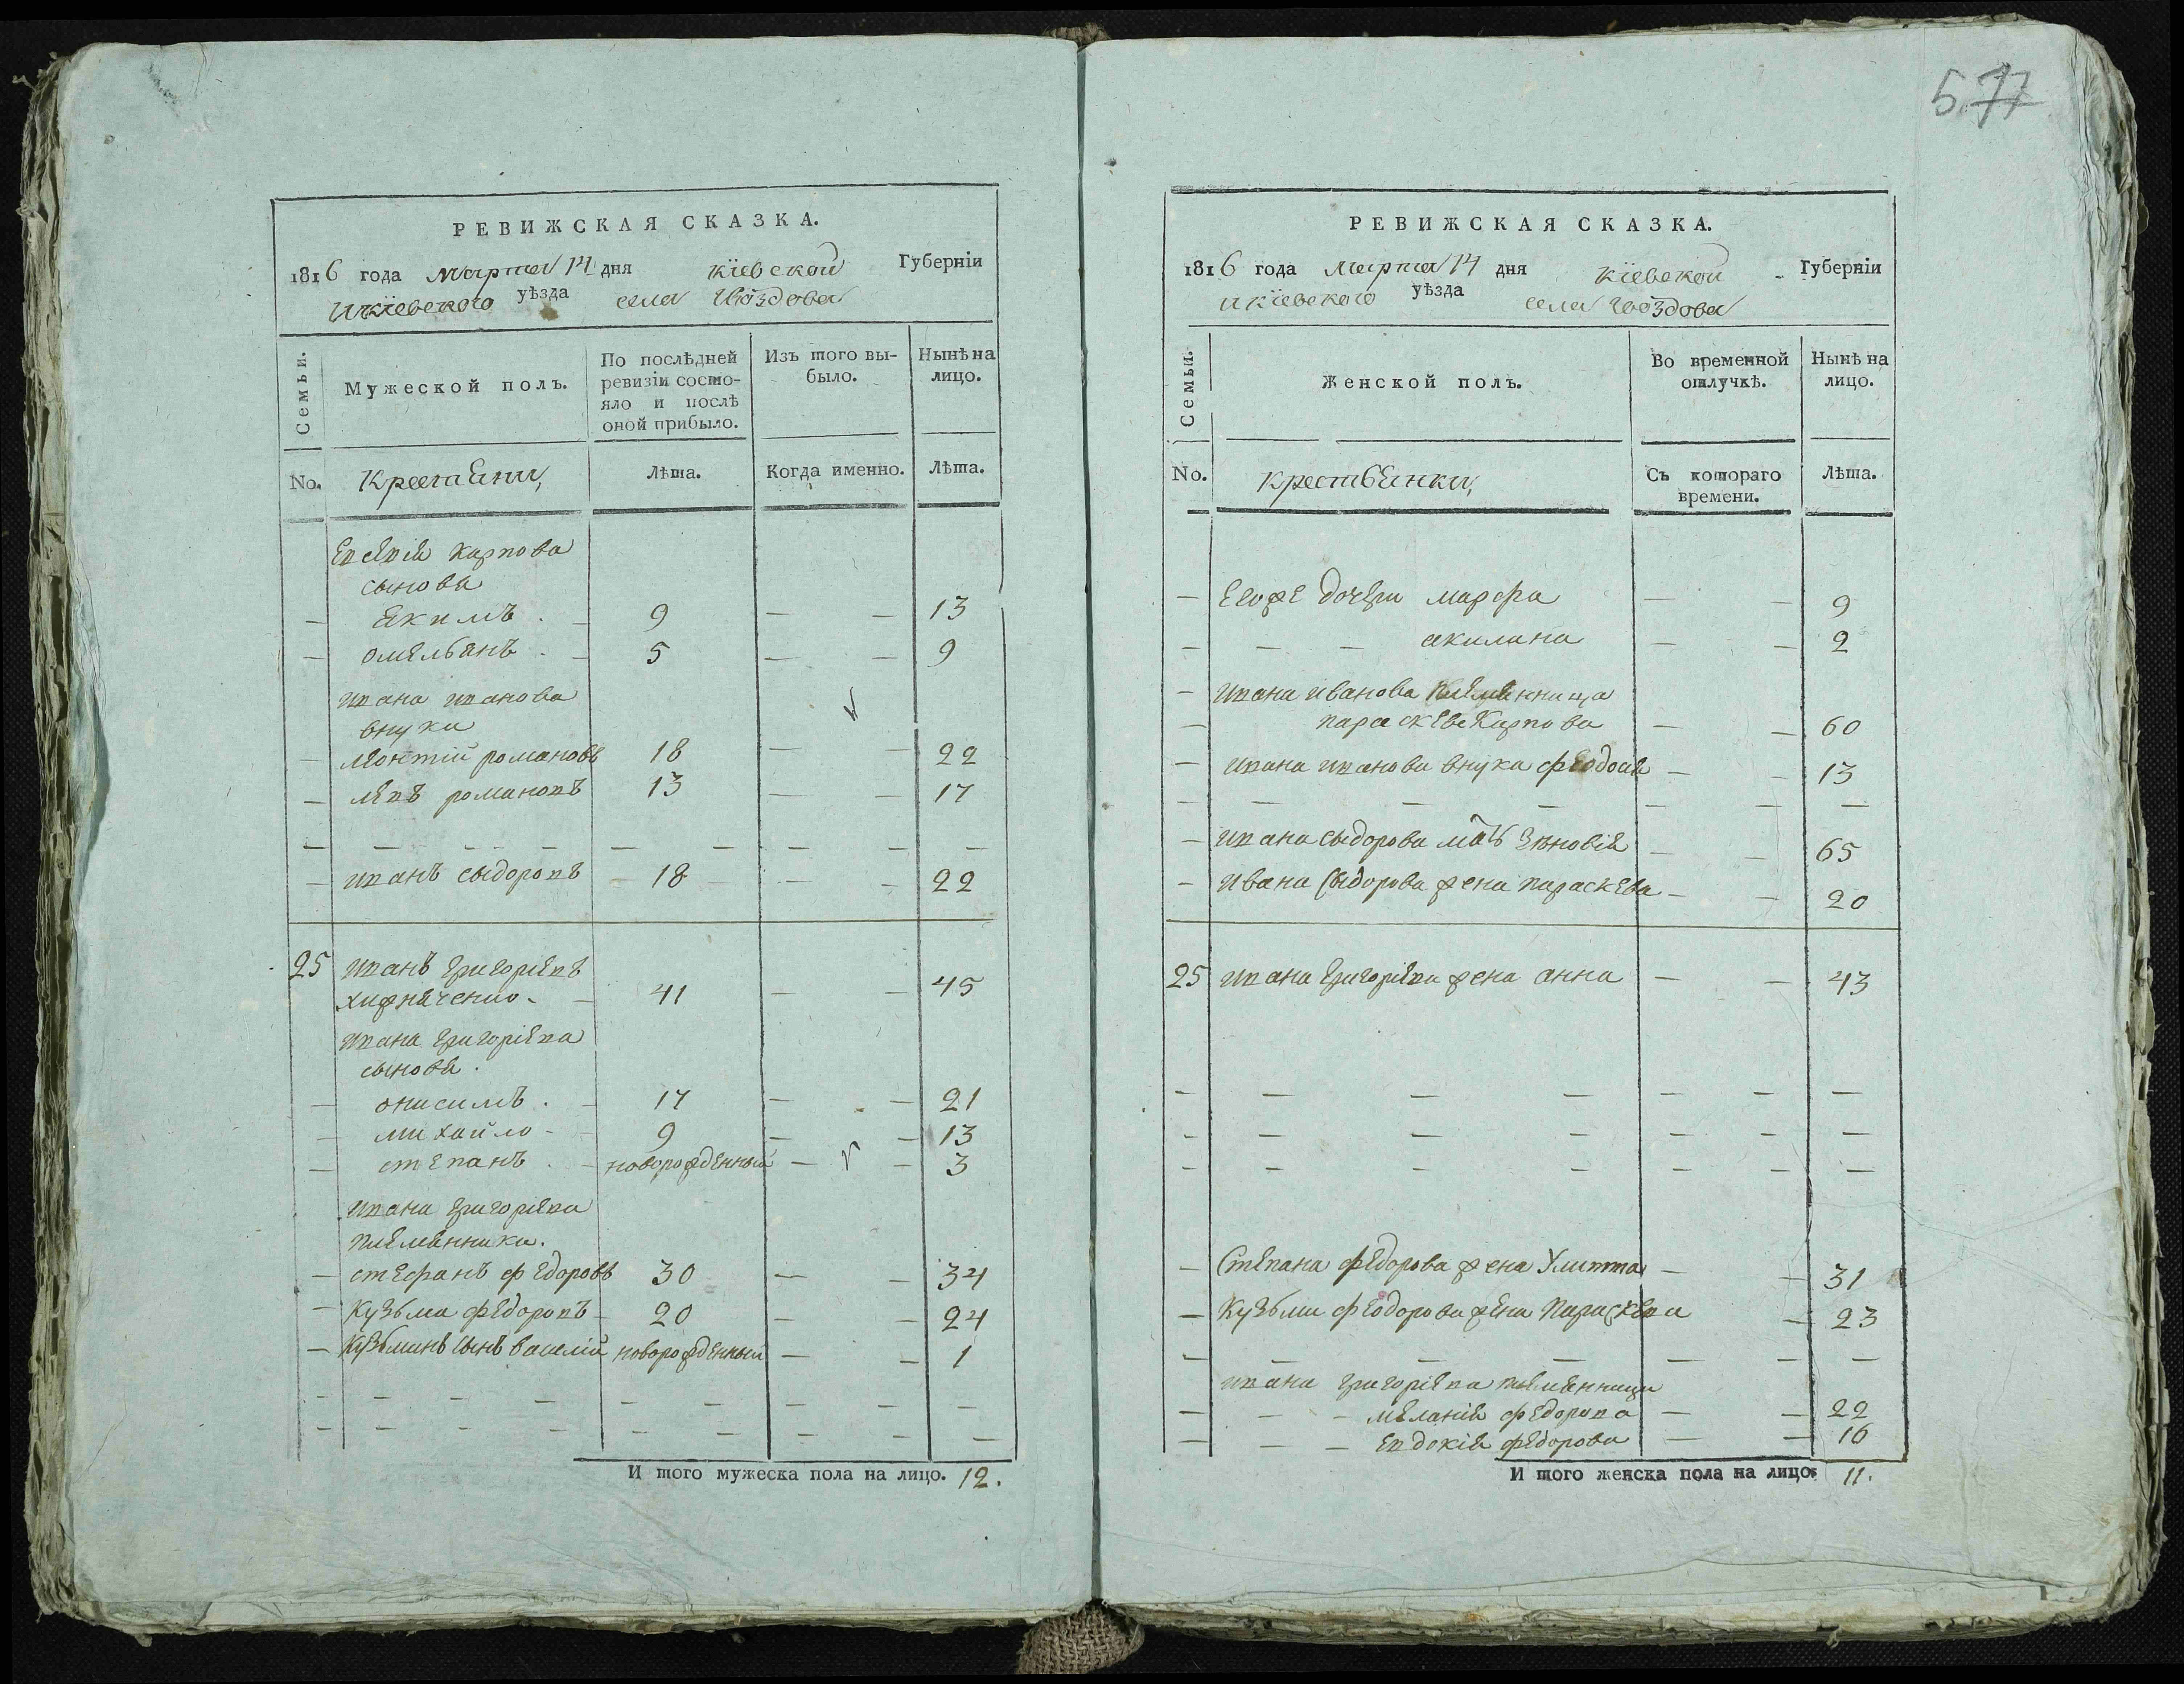 577
РЕВИЖСКАЯ СКАЗКА.
1816 года марта 14 дня кіевской Губерніи
икіевского уѣзда села Гвоздова
Семьи.
Мужеской полъ.
По послѣдней ревизіи состояло и послѣ оной прибыло.
Изъ того выбыло.
Нынѣ на лицо.
No. Лѣта. Когда именно. Лѣта.
Евсѣвія Карпова
сыновя
Якимъ . — 9 — — 13
омельянъ . — 5 — — 9
ивана иванова
внуки
леонтій романовъ 18 — — 22
левъ романовъ 13 — — 17
— — — — — — — — — —
иванъ сыдоровъ 18 — — 22
25 иванъ григоріевъ
41 — — 45
ивана григоріева
сыновя .
онисимъ . — 17 — — 21
михайло — 9 — — 13
степанъ . — новорожденный — — 3
ивана григоріева
племянники.
стефанъ федоровъ 30 — — 34
Кузьма федоровъ 20 — — 24
Кузьминъ сынъ василій новорожденный — — 1
— — — — — — — — —
— — — — — — — — —
И того мужеска пола на лицо. 12.
РЕВИЖСКАЯ СКАЗКА.
1816 года марта 14 дня кіевской Губерніи
икіевского уѣзда села Гвоздова
Семьи.
Женской полъ.
Во временной отлучкѣ.
Нынѣ на лицо.
No. крестьянки, Съ котораго времени. Лѣта.
— Егоже дочери марфа — — 9
— — — акилина — — 2
— ивана иванова племянница
— параскева Карпова — — 60
— ивана иванова внука феодосія — — 13
— — — — — — —
— ивана сыдорова мать Зѣновія — — 65
— ивана Сыдорова жена параскева — — 20
25 ивана григоріева жена анна — — 43
— — — — — — —
— — — — — — —
— — — — — — —
— Степана федорова жена Улитта — — 31
— Кузьми феодорова жена Параскева — 23
— — — — — — —
ивана григоріева племянницы
— — — меланія федорова — — 22
— — — евдокія федорова — — 16
И того женска пола на лицо: 11.